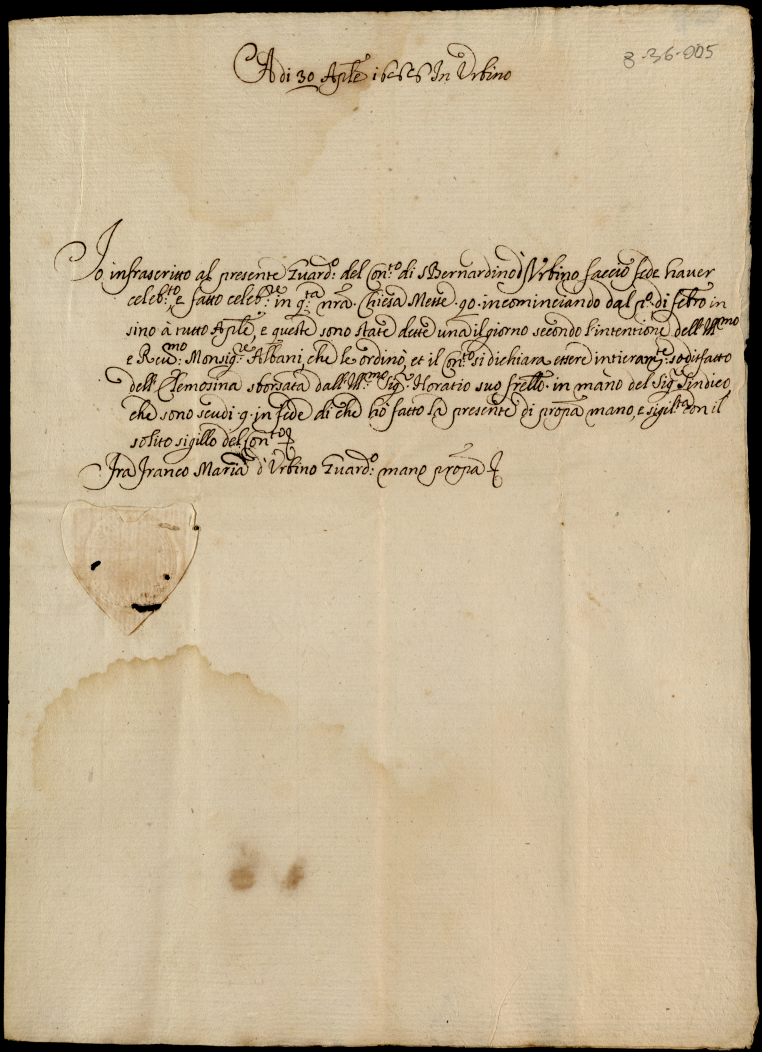 8-36-005
Adi 30 Aprile 1656 In Urbino
Io infrascritto al presente Guard:o del Con:to di S Bernardino d'Urbino faccio fede haver
celeb:to, e fatto celeb:re in q:ta nra Chiesa Messe 90 incominciando dal p:o di febro in
sino à tutto Aprile, e queste sono state dette una il giorno secondo l'intentione dell'Ill:mo
e Reu:mo Monsig:re Albani, che le ordinò, et il Con:to si dichiara essere intieram:te sodisfatto
dell'Elemosina sborsata dall'Ill:mo Sig:re Horatio suo frello in mano del Sig:re Sindico
che sono scudi 9 in fede di che hò fatto la presente di propa mano, e sigil:ta con il
solito sigillo del Con:to
Fra Franco Maria d'Urbino Guard:o mano propa